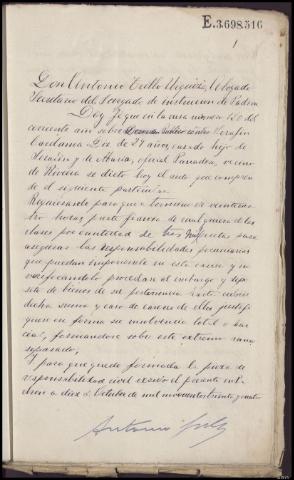 E.3698516
1
Don Antonio Tutte Urquiza, Abogado
Secretario del Juzgado de instruccion de Padron
Doy fe: que en la causa numero 150 del
corriente año sobre contra Serafin
Cardama de 27 años, casado hijo de
Serafin y de Maria, oficial Panadero, vecino
de Riveira se dictó hoy el auto que compren-
de el siguiente particular
Requierasele para que termino de veinticua-
tro horas preste fianza de cualquiera de las
clases por cantidad de pesetas para
asegurar las responsabilidades pecuniarias
que puedan imponersele en esta causa y no
verificandolo procedase al embargo y
de bienes de su pertenencia hasta cubrir
dicha suma y caso de carecer de ellos justifi-
quese en forma su insolvencia total o par-
cial, formandose sobre este extremo ramo
separado.
Y para que quede formada la pieza de
responsabilidad civil expido el presente en
a diez de Octubre de mil novecientos treinta y cuatro
Antonio